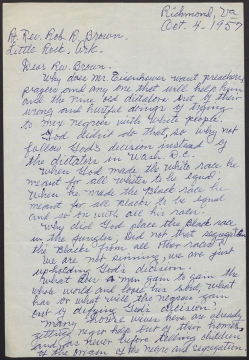 Richmond, Va
Oct. 4-1957
Rt. Rev. Rob. R. Brown.
Little Rock, Ark.
Dear Rev. Brown.
Why does Mr. Eisenhower want preachers,
prayers and any one that will help him
and the nine old dictators out of their
wrong and hurtful doings of trying
to mix negroes with white people.
God didn't do that, so why not
follow God's decision instead of
the dictators in Wash. D.C.
When God made the white race he
meant for all whites to be equal;
When he made the Black race he
meant for all Blacks to be equal
and so on with all his races.
Why did God place the Black race
in the jungles, did not that segregate
the Blacks from all other races?
We are not sinning, we are just
upholding God's decision.
What does a man gain to gain the
whole world and lose his soul, what
has or what will the negroes gain
out by defying God's decision?
Many white homes have already
getting negro help out of their homes,
and has never before teeling children
of the of the negro and segregation